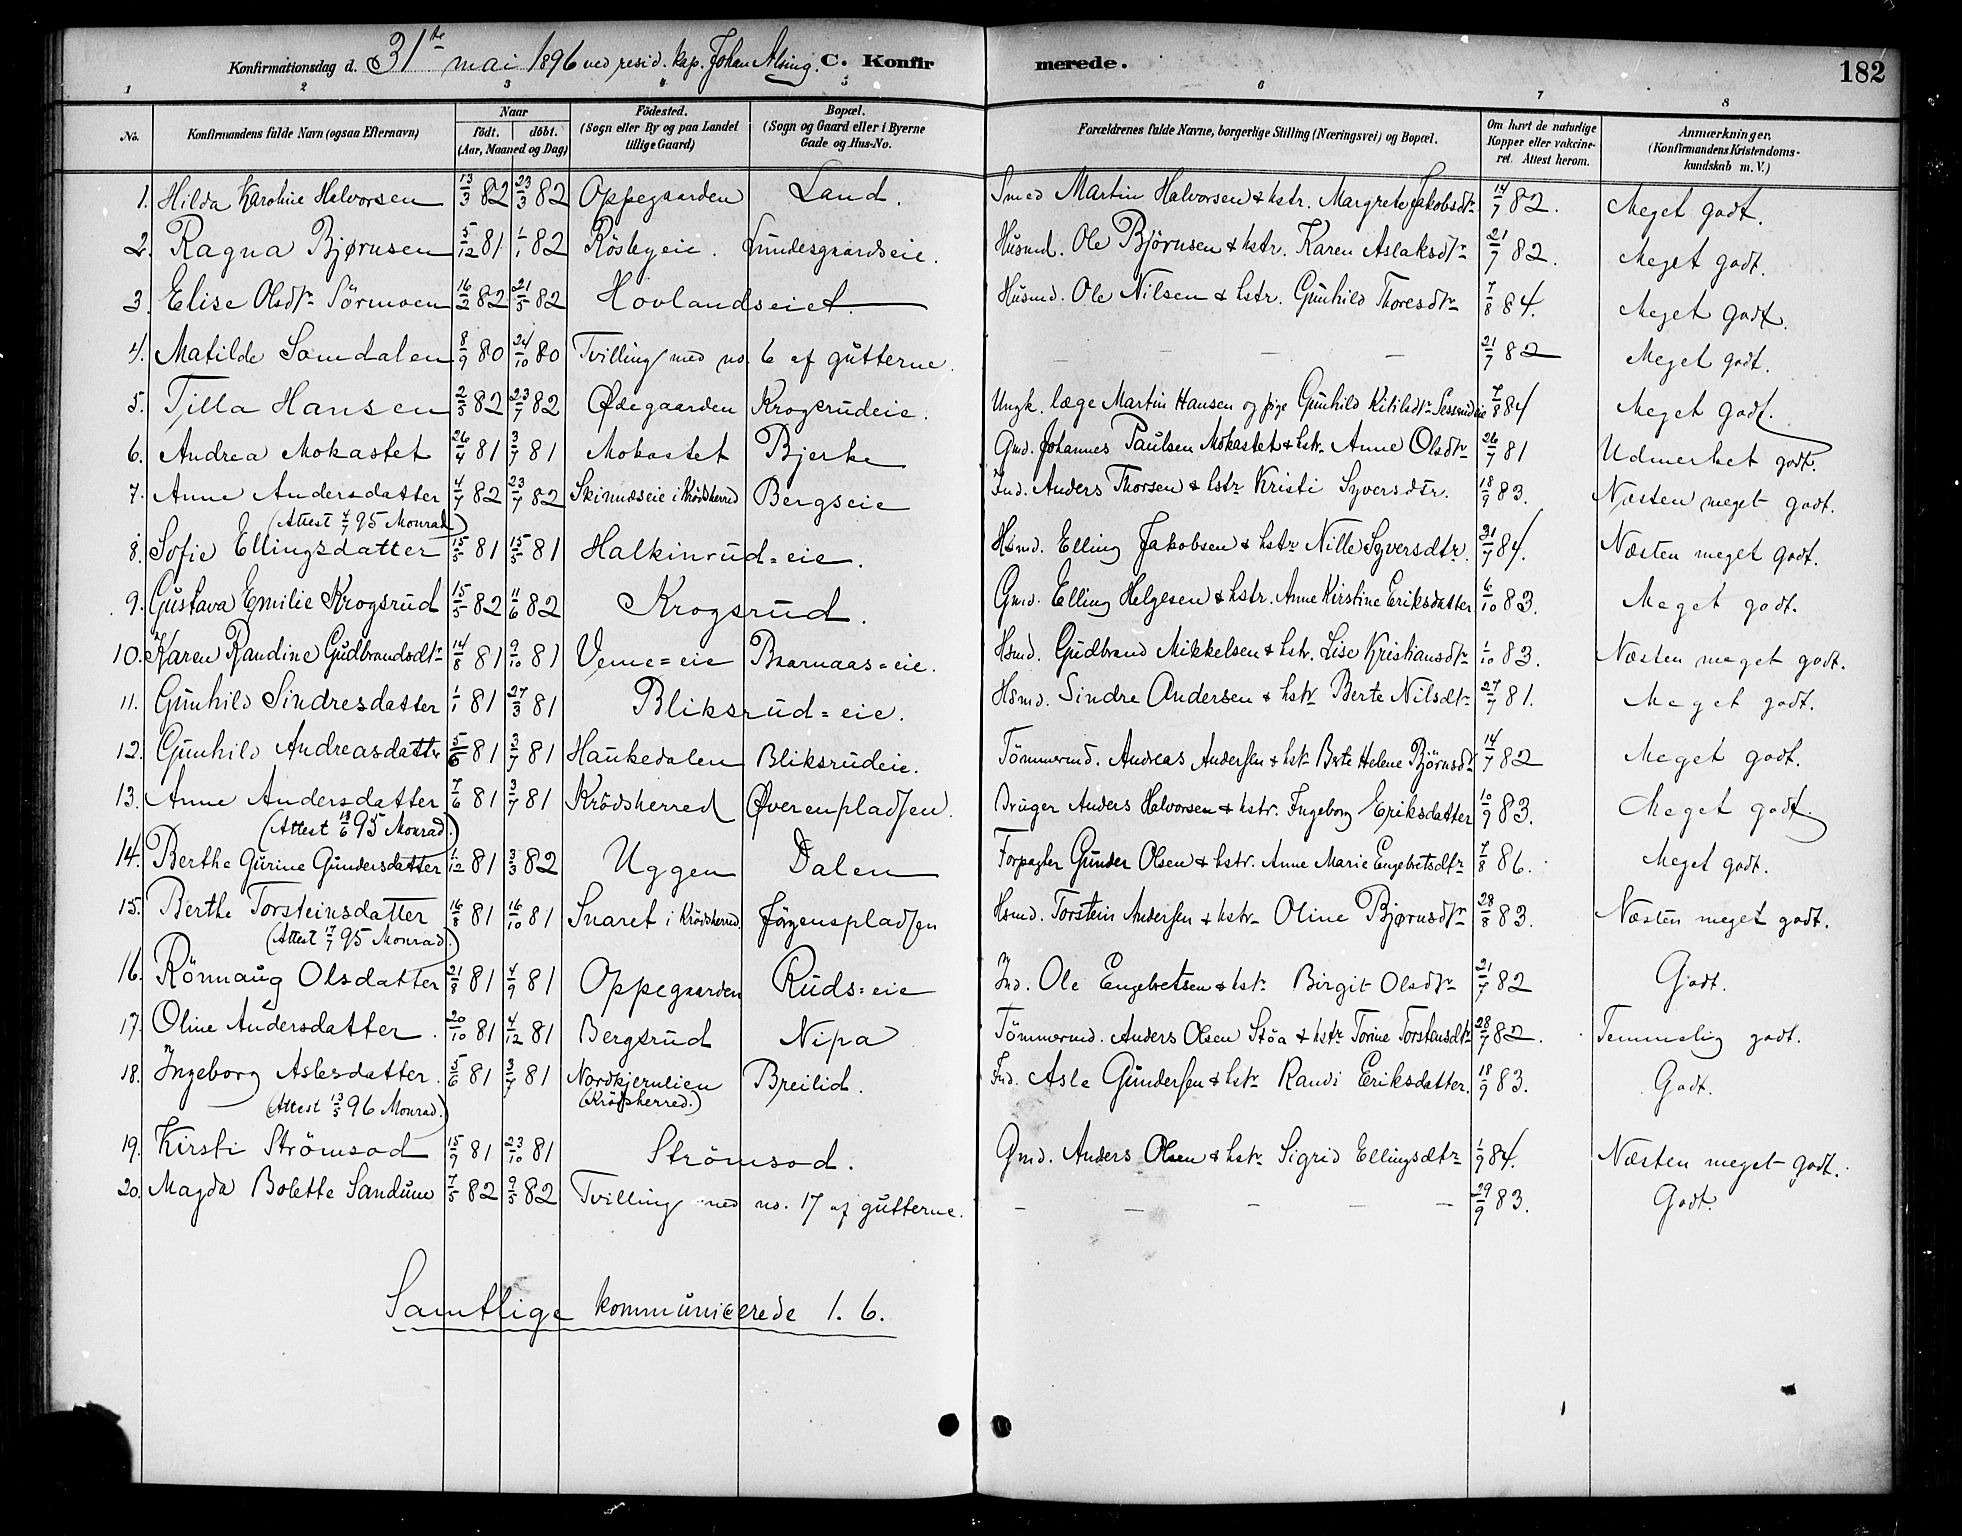 Konfirmationsdag d. 31te mai 1896 ved resid. kap. Johan Alsing. C. Konfirmerede. 182
1 2 3 4 5 6 7 8
No. Konfirmandens fulde Navn (ogsaa Efternavn) Naar født. døbt. (Aar, Maaned og Dag) Födested. (Sogn eller By og paa Landet tillige Gaard) Bopæl. (Sogn og Gaard eller i Byerne Gade og Hus-No. Forældrenes fulde Navne, borgerlige Stilling (Næringsvei) og Bopæl. Om havt de naturlige Kopper eller vakcineret. Attest herom. Anmærkninger, (Konfirmandens Kristendomskundskab m. V.)
1. Hilda Karoline Halvorsen 13/3 82 23/3 82 Oppegaarden Land. Smed Martin Halvorsen & hstr. Margrete Jakobsdtr 14/7 82. Meget godt.
2. Ragna Bjørnsen 5/12 81 1/1 82 Rösbyeie. Lundesgaardseie. Husmd. Ole Björnsen & hstr. Karen Aslaksdtr 21/7 82. Meget godt.
3. Elise Olsdtr Sörmoen 16/2 82 21/5 82 Hovlandseiet. Husmd. Ole Nilsen & hstr. Gunhild Thoresdtr 7/8 84. Meget godt.
4. Matilde Somdalen 8/9 80 24/10 80 Tvilling med no. 6 af gutterne. — — — — 21/7 82 Meget godt.
5. Tilla Hansen 2/5 82 23/7 82 Ødegaarden Krogsrudeie. Ungk. læge Martin Hansen og pige Gunhild Kittilsdtr 7/8 84 Meget godt.
6. Andrea Mokastet 26/4 81 3/7 81 Mokastet Bjerke Gmd. Johannes Paulsen Mokastet & hstr. Anne Olsdtr 26/7 81 Udmerket godt.
7. Anne Andersdatter 4/7 82 23/7 82 Skinnæseie i Krödsherred Bergseie Ind. Anders Thorsen & hstr Kristi Syversdtr. 18/9 83. Næsten meget godt.
(Attest 4/7 95 Monrad)
8. Sofie Ellingsdatter 15/5 81 15/5 81 Halkinrud=eie. Hsmd. Elling Jakobsen & hstr Nille Syversdtr. 31/7 84. Næsten meget godt.
9. Gustava Emilie Krogsrud 15/5 82 11/6 82 Krogsrud. Gmd. Elling Helgesen & hstr. Anne Kirstine Eriksdatter 6/10 83. Meget godt.
10. Karen Randine Gudbrandsdtr 14/8 81 9/10 81 Veme=eie Baarnaas=eie. Hsmd. Gudbrand Mikkelsen & hstr. Lise Kristiansdtr 1/10 83. Næsten meget godt.
11. Gunhild Sindresdatter 1/1 81 27/3 81 Bliksrud=eie. Hsmd. Sindre Andersen & hstr Berte Nilsdtr 27/7 81. Meget godt.
12. Gunhild Andreasdatter 5/6 81 3/7 81 Haukedalen Bliksrudeie. Tömmermd. Andreas Andersen & hstr Berte Helene Björnsdtr 14/7 82 Meget godt.
13. Anne Andersdatter 7/6 81 3/7 81 Krödsherred Øverenpladsen. Bruger Anders Halvorsen & hstr. Ingeborg Eriksdatter 10/9 83. Meget godt.
(Attest 18/6 95 Monrad.)
14. Berthe Gurine Gundersdatter 1/12 81 3/3 82 Uggen Dalen Forpagter Gunder Olsen & hstr. Anne Marie Engebretsdtr 7/8 86. Meget godt.
15. Berthe Torsteinsdatter 16/8 81 16/10 81 Snaret i Krödsherred. Jörgenspladsen Hsmd. Torstein Andersen & hstr Oline Bjørnsdtr 28/8 83. Næsten meget godt.
(Attest 17/7 95 Monrad.)
16. Rönnaug Olsdatter 21/8 81 4/9 81 Oppegaarden Ruds=eie Ind. Ole Engebretsen & hstr Birgit Olsdtr 21/7 82 Godt.
17. Oline Andersdatter. 20/10 81 4/12 81 Bergsrud Nipa Tömmermd. Anders Olsen Stöa & hstr Torine Torstensdtr 28/7 82. Temmelig godt.
18. Ingeborg Aslesdatter. 5/6 81 3/7 81 Nordkjernlien (Krödsherred.) Breilid. Ind. Asle Gundersen & hstr Randi Eriksdatter. 18/9 83. Godt.
(Attest 13/5 96 Monrad.)
19. Kirsti Strömsod 15/9 81 23/10 81 Strömsod. Gmd. Anders Olsen & hstr Sigrid Ellingsdtr 1/9 84. Næsten meget godt.
20. Magda Bolette Sandum 7/5 82 9/5 82 Tvilling med no. 17 af gutterne. — — — — — 29/9 83. Godt.
Samtlige kommunicerede 1. 6.